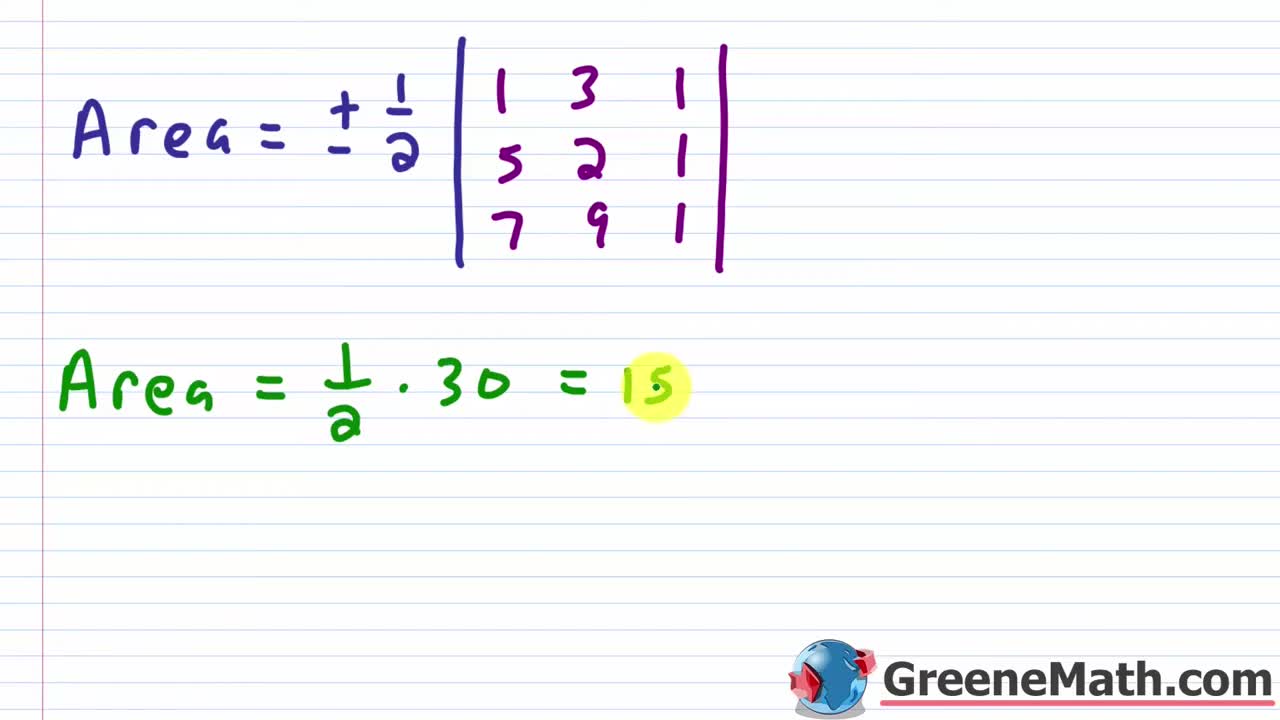 Area = ± 1/2 | 1 3 1 |
| 5 2 1 |
| 7 9 1 |
Area = 1/2 · 30 = 15
GreeneMath.com